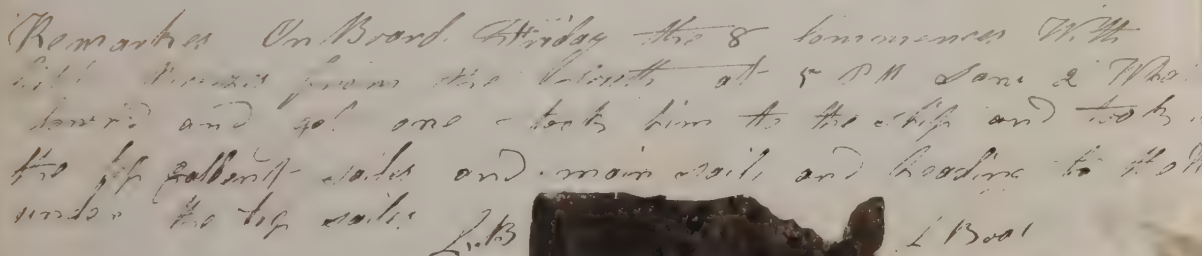 Remarkes On Board Friday the 8 Commences With
breezes from the South at 5 PM Saw 2 Wha
lowerd and got one - took him to the ship and took
the top gallant sailes and main sail and heading to the
under the top sailes
L. B L Boat